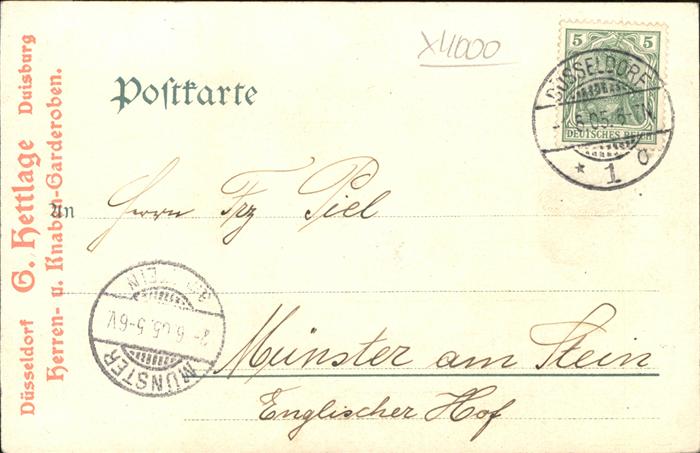 x4000
5 5
DEUTSCHES REICH
DÜSSELDORF
6.05. 6-7N
* 1 o
Postkarte
Düsseldorf G. Hettlage Duisburg
Herren- u. Knaben-Garderoben.
An
Herrn Frz Piel
MÜNSTER
2-6.05.5-6V.
STEIN
Münster am Stein
Englischer Hof